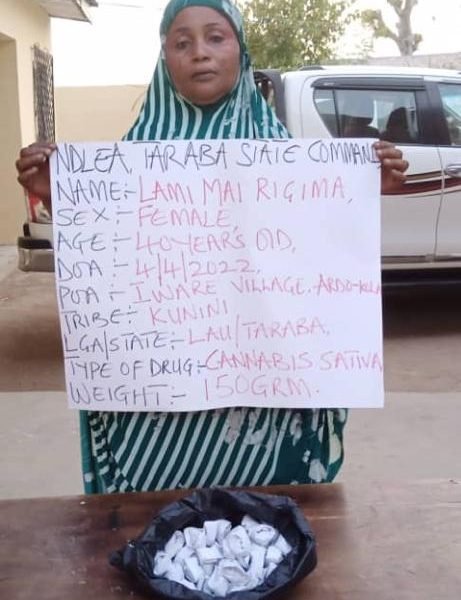 NDLEA, TARABA STATE COMMAND
NAME:- LAMI MAI RIGIMA,
SEX:- FEMALE,
AGE:- 40 YEAR'S OLD,
DOA:- 4/4/2022,
POA:- IWARE VILLAGE, ARDO-KOLA
TRIBE:- KUNINI
LGA/STATE:- LAU/TARABA.
TYPE OF DRUG:- CANNABIS SATIVA
WEIGHT:- 150GRM.